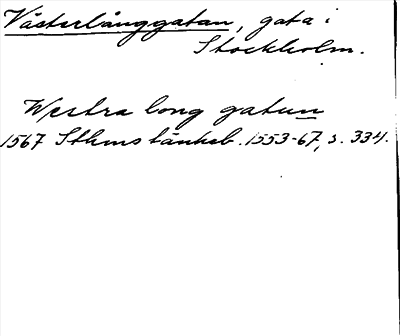 Västerlånggatan, gata i
Stockholm.
Westra long gatun
1567 Sthms tänkeb. 1553-67, s. 334.